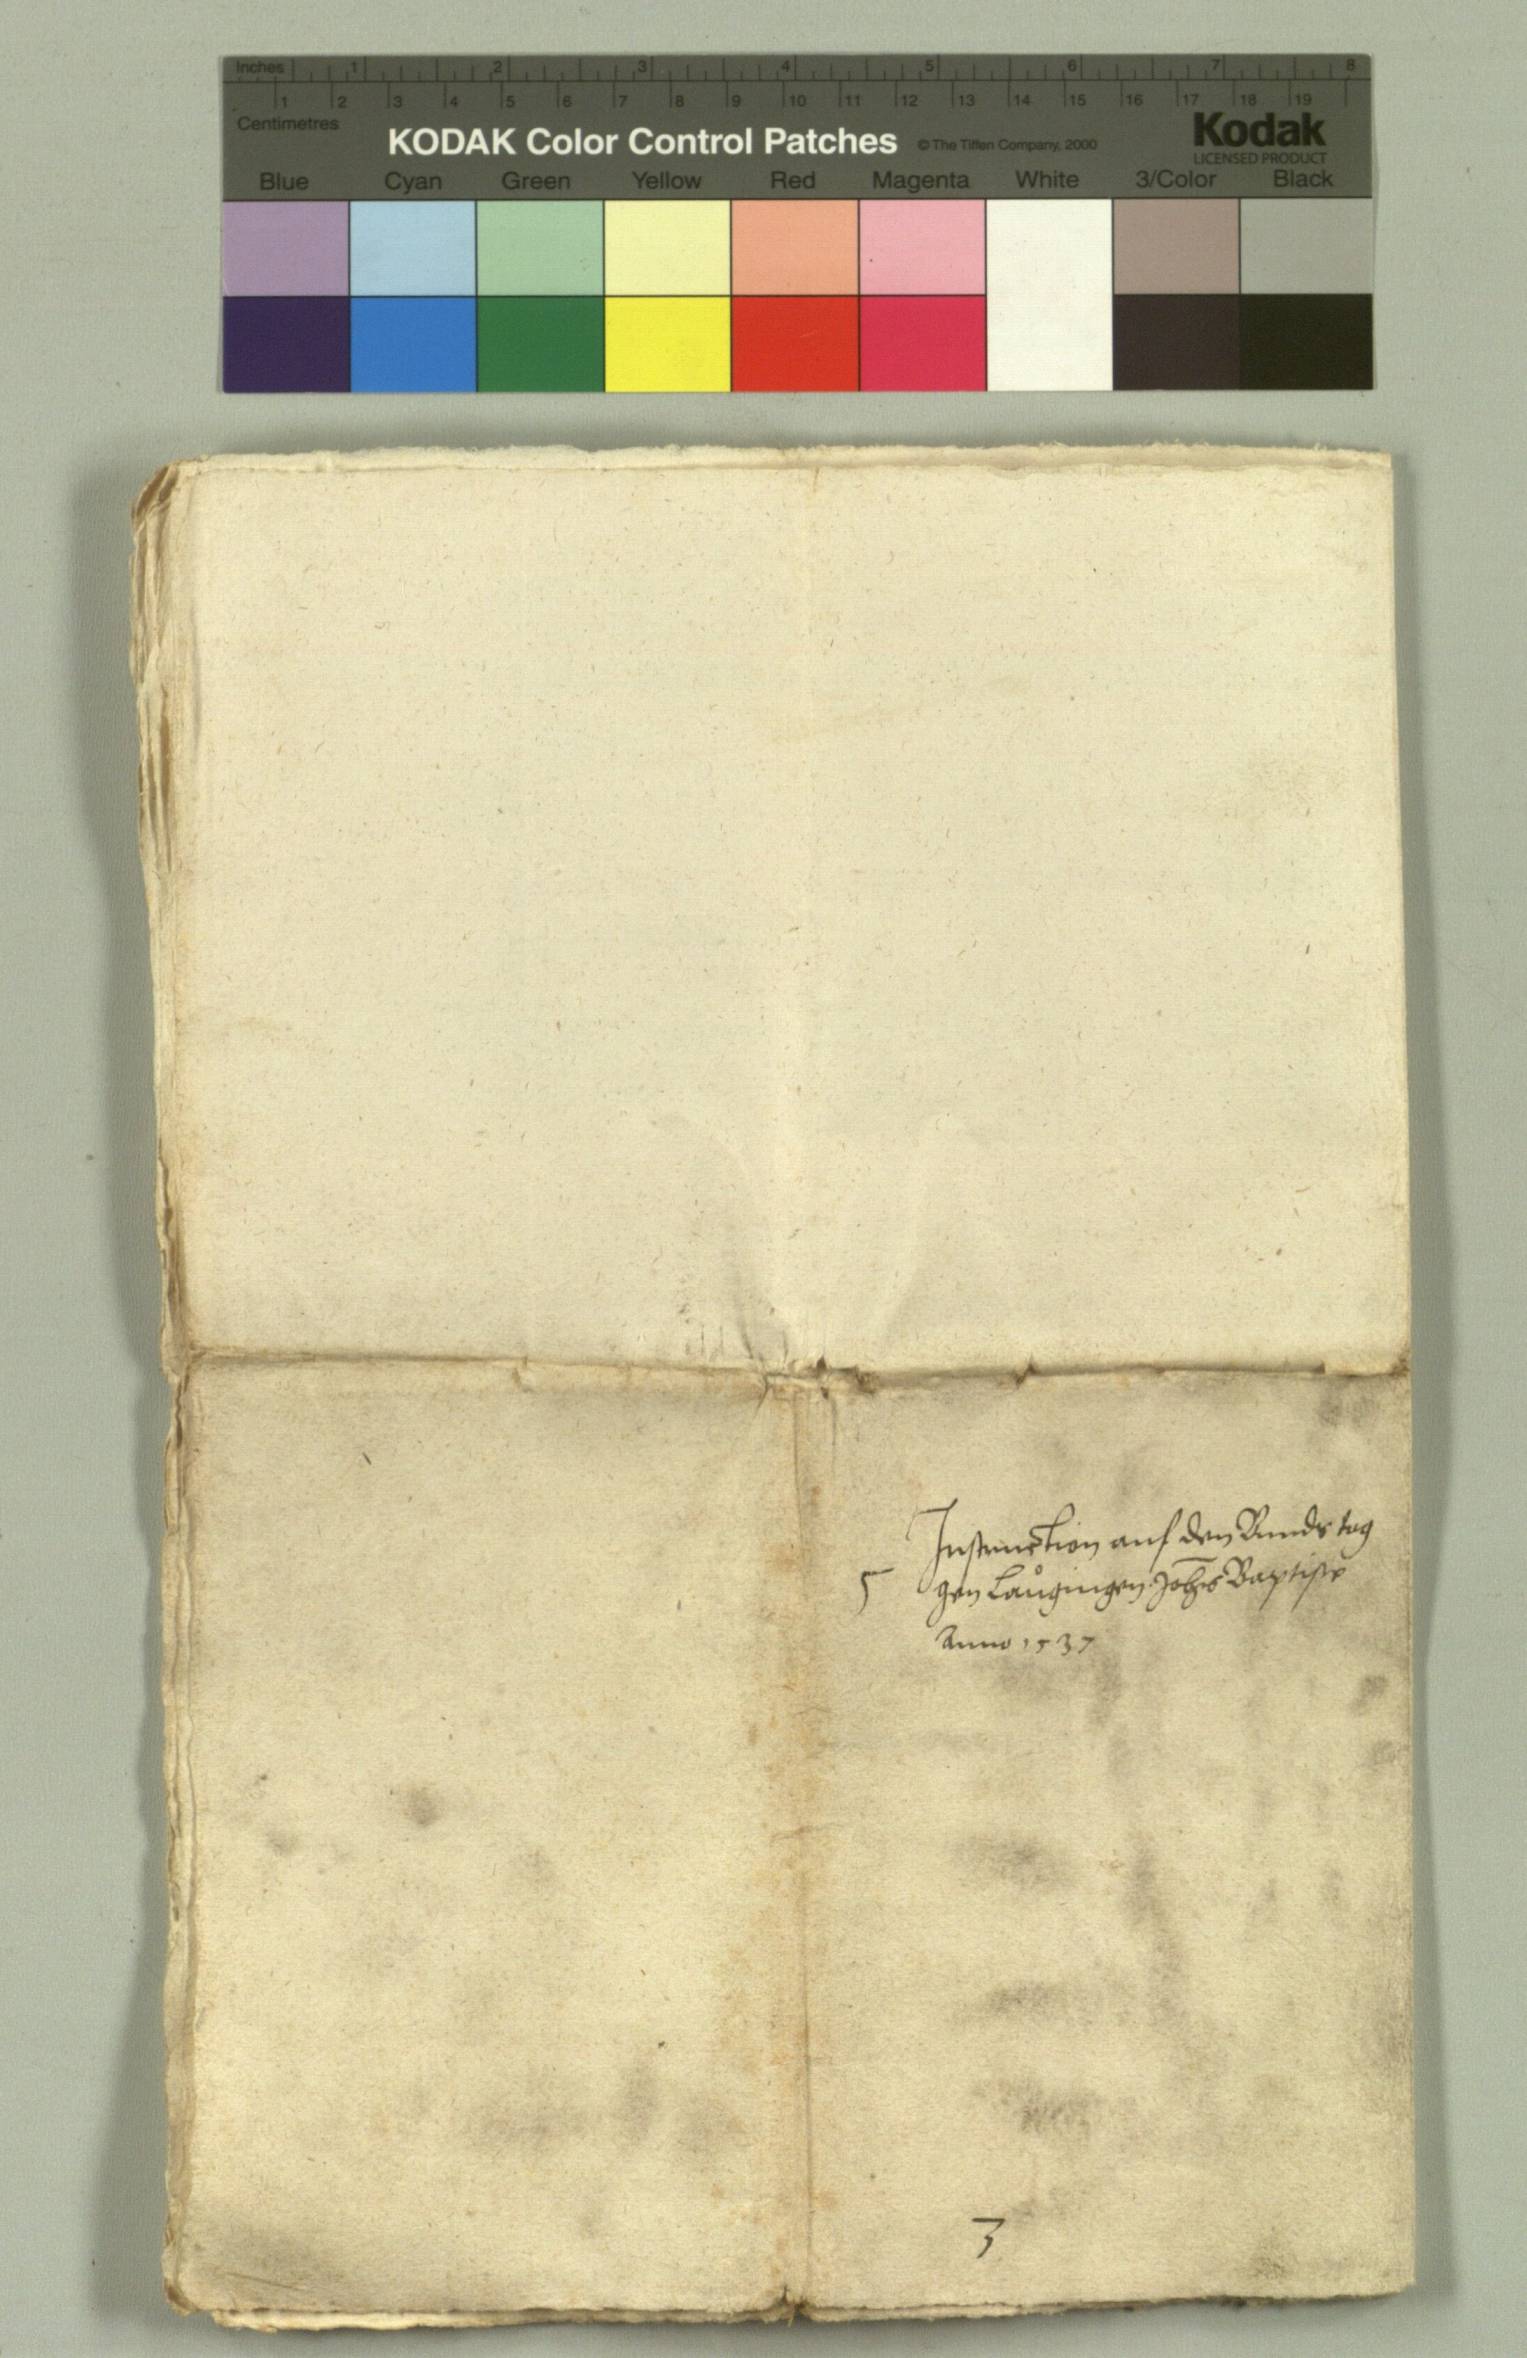 Inches 1 2 3 4 5 6 7 8
1 2 3 4 5 6 7 8 9 10 11 12 13 14 15 16 17 18 19
Centimetres
KODAK Color Control Patches © The Tiffen Company, 2000 Kodak
LICENSED PRODUCT
Blue Cyan Green Yellow Red Magenta White 3/Color Black
Instruction auf den Bundstag
5 gen Laugingen Joh̄is Baptiste
Anno 1537
3